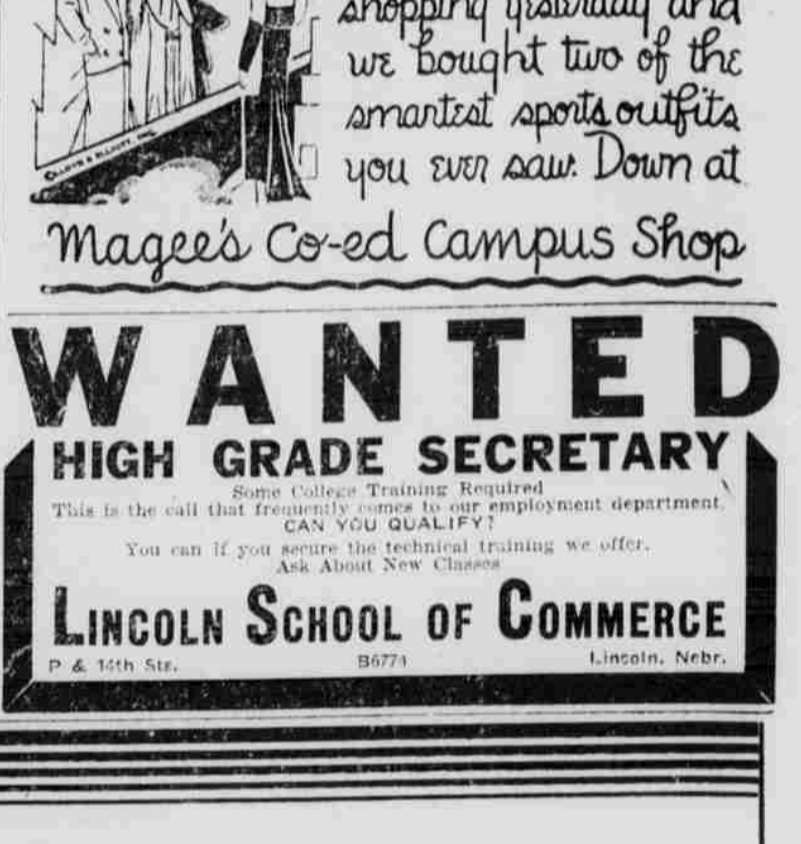 shopping yesterday and
we bought two of the
smartest sports outfits
you ever saw. Down at
Magee's Co-ed Campus Shop
WANTED
HIGH GRADE SECRETARY
Some College Training Required
This is the call that frequently comes to our employment department.
CAN YOU QUALIFY?
You can if you secure the technical training we offer.
Ask About New Classes
LINCOLN SCHOOL OF COMMERCE
P & 14th Sts. B6774 Lincoln, Nebr.